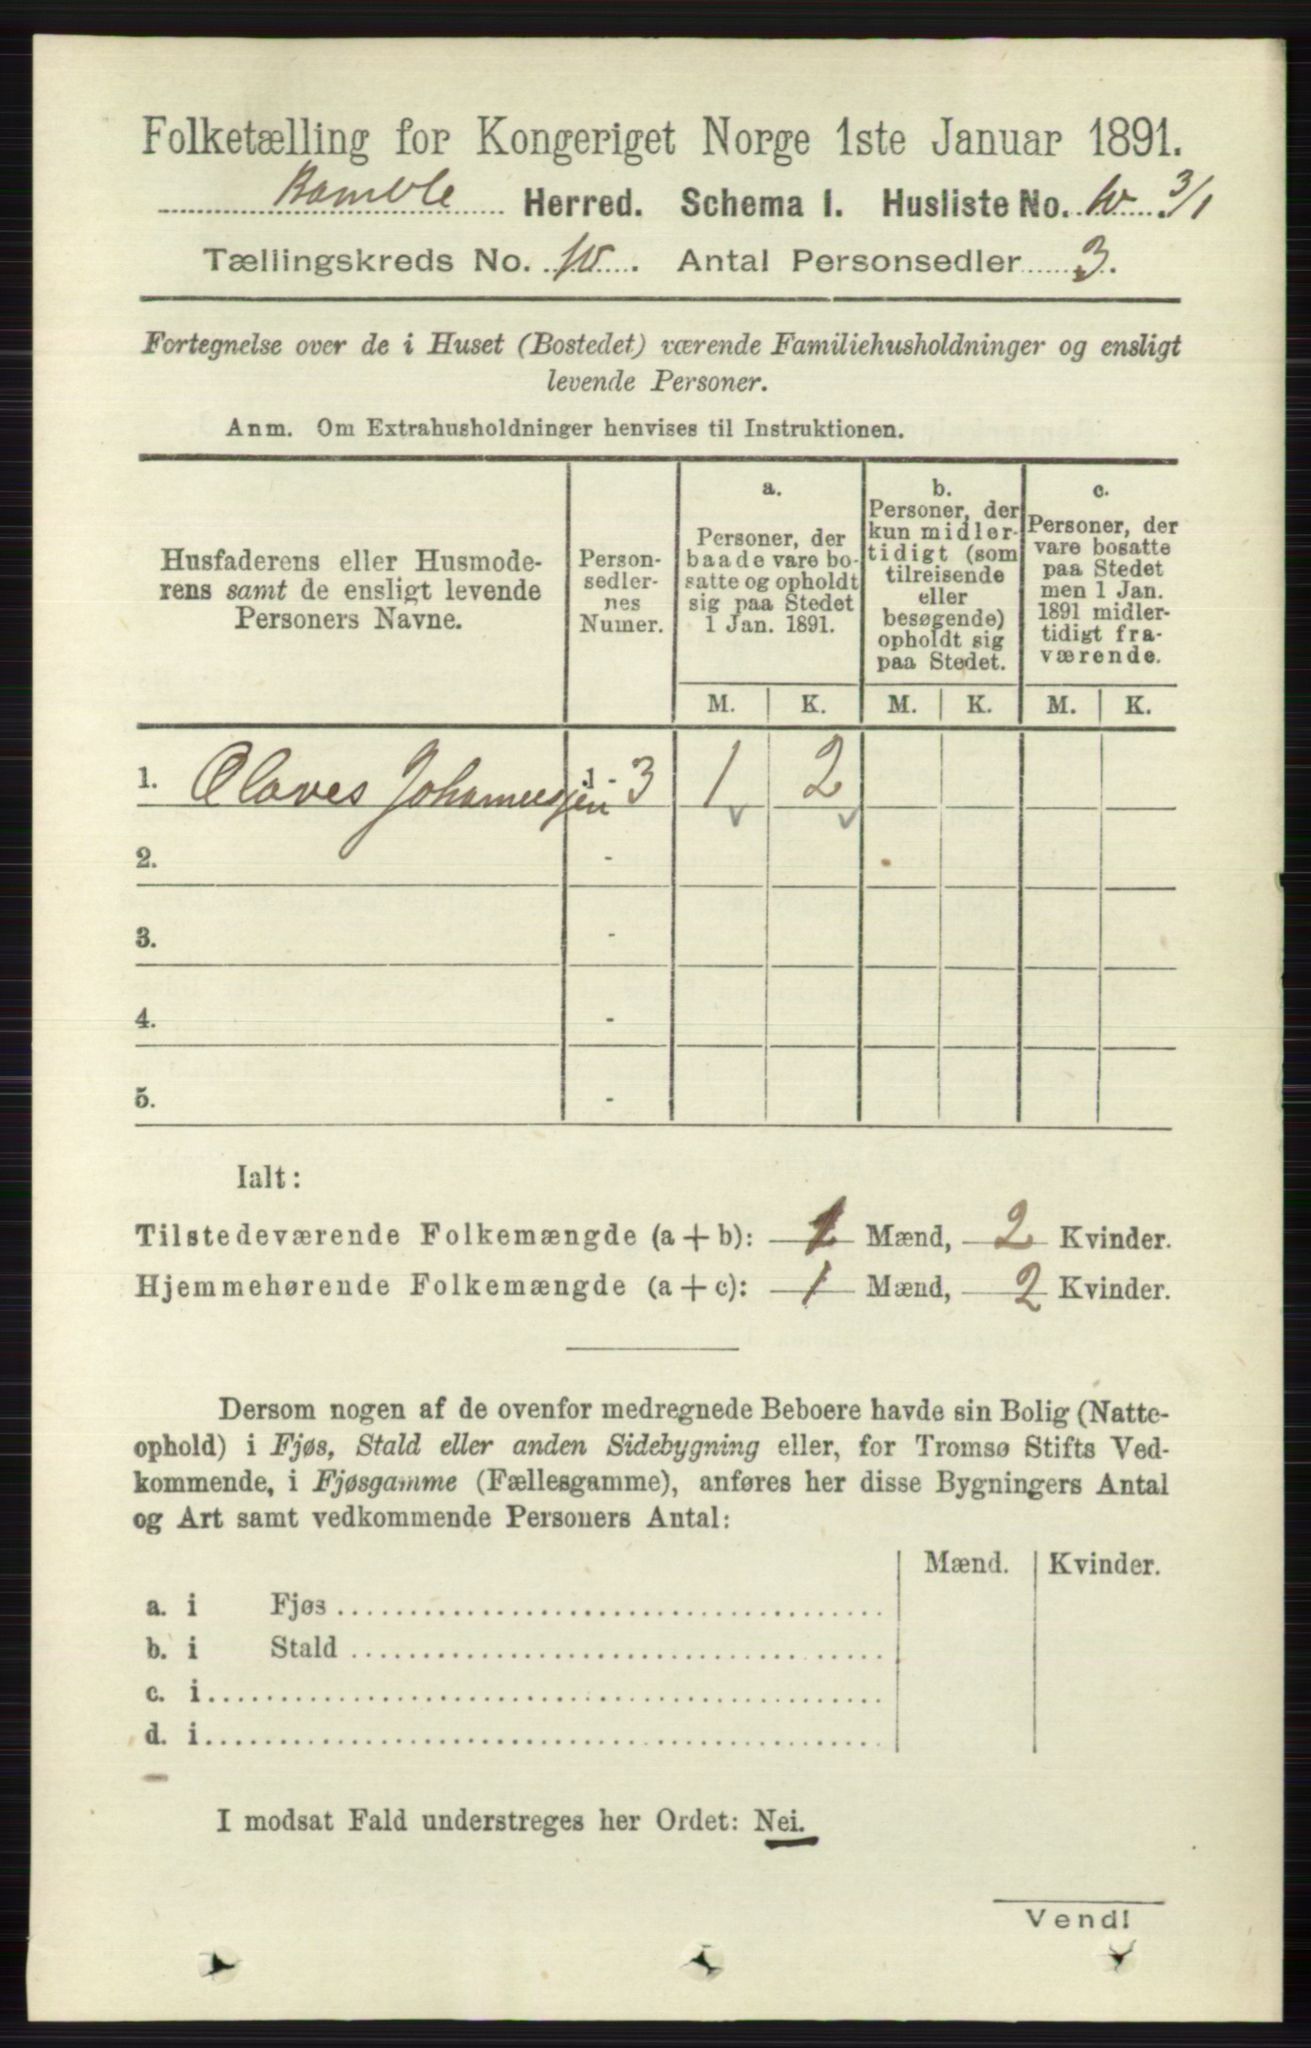 Folketælling for Kongeriget Norge 1ste Januar 1891.
Bamble Herred. Schema I. Husliste No. 10 3/1
Tællingskreds No. 10. Antal Personsedler 3.
Fortegnelse over de i Huset (Bostedet) værende Familiehusholdninger og ensligt
levende Personer.
Anm. Om Extrahusholdninger henvises til Instruktionen.
Husfaderens eller Husmode-
rens samt de ensligt levende
Personers Navne.
Person-
sedler-
nes
Numer.
a.
Personer, der
baade vare bo-
satte og opholdt
sig paa Stedet
1 Jan. 1891.
b.
Personer, der
kun midler-
tidigt (som
tilreisende
eller
besøgende)
opholdt sig
paa Stedet.
c.
Personer, der
vare bosatte
paa Stedet
men 1 Jan.
1891 midler-
tidigt fra-
værende.
M. K. M. K. M. K.
1. Olaves Johannessen 1 - 3 1 2
2. -
3. -
4. -
5. -
Ialt:
Tilstedeværende Folkemængde (a+b): 1 Mænd, 2 Kvinder.
Hjemmehørende Folkemængde (a+c): 1 Mænd, 2 Kvinder.
Dersom nogen af de ovenfor medregnede Beboere havde sin Bolig (Natte-
ophold) i Fjøs, Stald eller anden Sidebygning eller, for Tromsø Stifts Ved-
kommende, i Fjøsgamme (Fællesgamme), anføres her disse Bygningers Antal
og Art samt vedkommende Personers Antal:
Mænd. Kvinder.
a. i Fjøs
b. i Stald
c. i
d. i
I modsat Fald understreges her Ordet: Nei.
Vend!